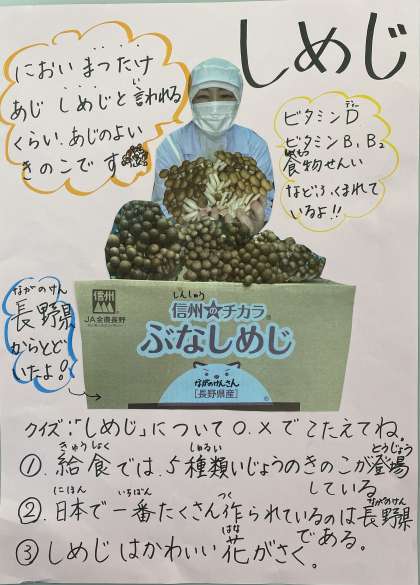 しめじ
においまつたけ
あじ しめじと言われる
くらい、あじのよい
きのこです
ビタミンD
ビタミンB₁、B₂
食物せんい
などふくまれて
いるよ!!
ながのけん
長野県
からとど
いたよ!
信州
JA全農長野
しんしゅう
信州のチカラ
ぶなしめじ
ながのけんさん
[長野県産]
クイズ:「しめじ」について○.×でこたえてね.
きゅうしょく しゅるい とうじょう
①.給食では、5種類いじょうのきのこが登場
している
にほん いちばん つく ながのけん
②.日本で一番たくさん作られているのは長野県
である。
はな
③しめじはかわいい花がさく。